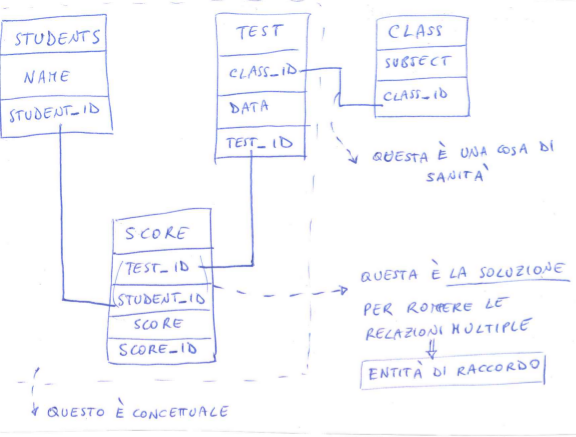 STUDENTS
NAME
STUDENT_ID
TEST
CLASS_ID
DATA
TEST_ID
CLASS
SUBJECT
CLASS_ID
QUESTA È UNA COSA DI
SANITÀ
SCORE
TEST_ID
STUDENT_ID
SCORE
SCORE_ID
QUESTA È LA SOLUZIONE
PER ROMPERE LE
RELAZIONI MULTIPLE
ENTITÀ DI RACCORDO
QUESTO È CONCETTUALE